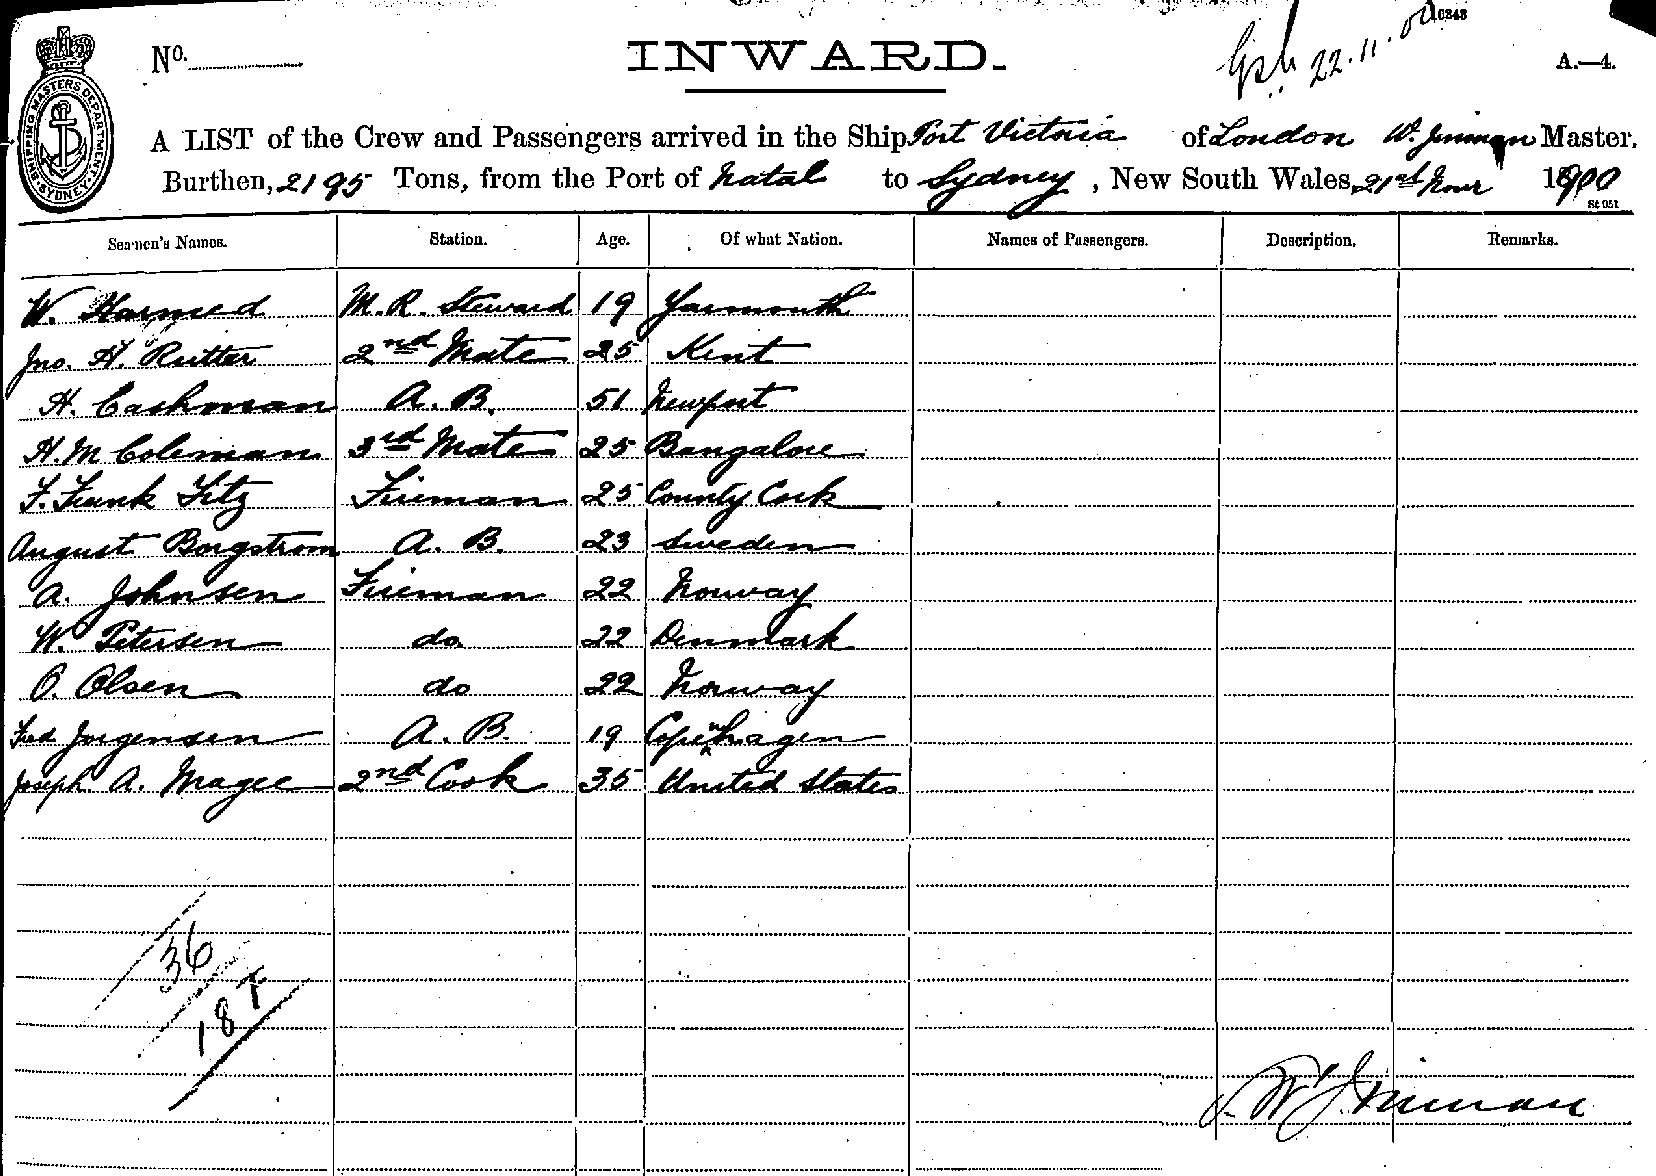 C248
No. INWARD. 22.11.00 A.—4.
SHIPPING MASTERS DEPARTMENT SYDNEY
A LIST of the Crew and Passengers arrived in the Ship Port Victoria of London W. Jinman Master.
Burthen, 2195 Tons, from the Port of Natal to Sydney, New South Wales, 21st Novr 1900
St 051
Seamen's Names. Station. Age. Of what Nation. Names of Passengers. Description. Remarks.
W. Harmed M. R. Steward 19 Yarmouth
Jno. H. Rutter 2nd Mate 25 Kent
H. Cashman A. B. 51 Newport
H. M Coleman 3rd Mate 25 Bangalore
F. Frank Fitz Fireman 25 County Cork
August Borgstrom A. B. 23 Sweden
A. Johnsen Fireman 22 Norway
W. Petersen do 22 Denmark
O. Olsen do 22 Norway
Fred Jorgensen A. B. 19 Copenhagen
Joseph A. Magee 2nd Cook 35 United States
36
18
W Jinman